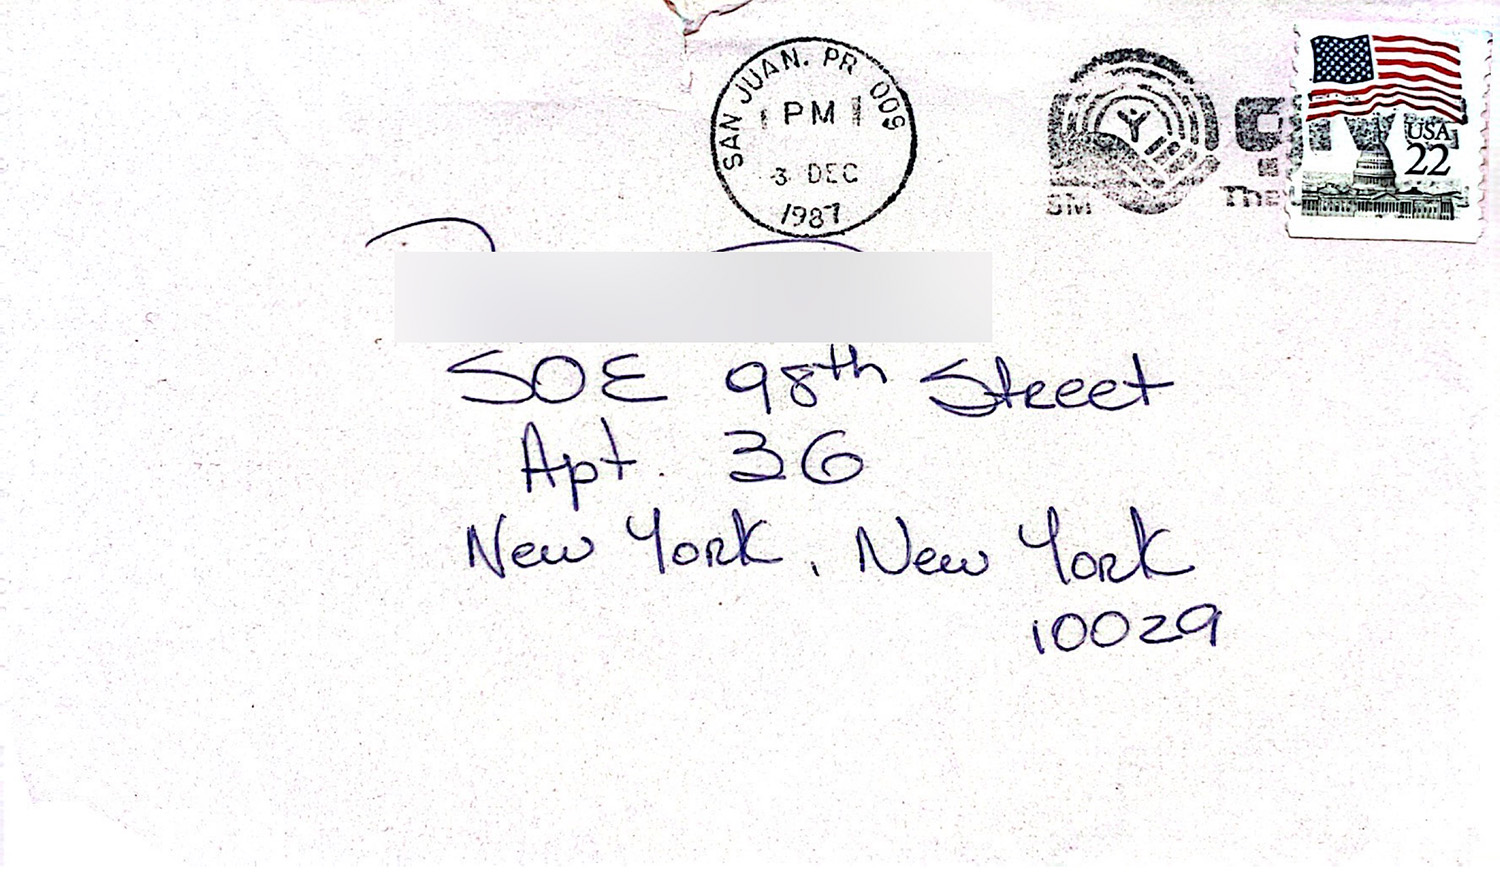 SAN JUAN. PR 009
PM
3 DEC
1987
USA
22
SM
The
50E 98th Street
Apt. 3G
New York, New York
10029